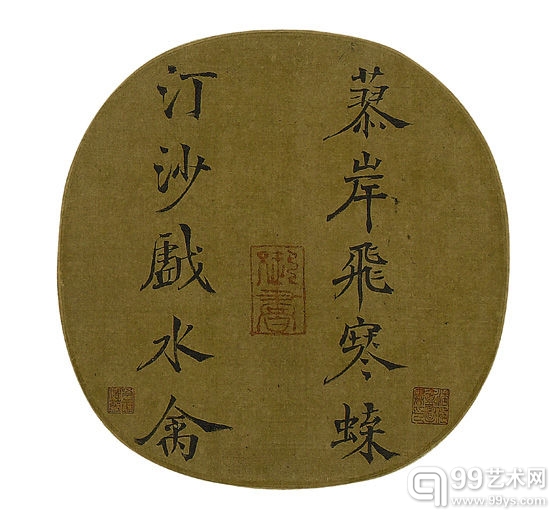 蓼岸飛寒蝶
汀沙戯水禽
御書
99艺术网
www.99ys.com